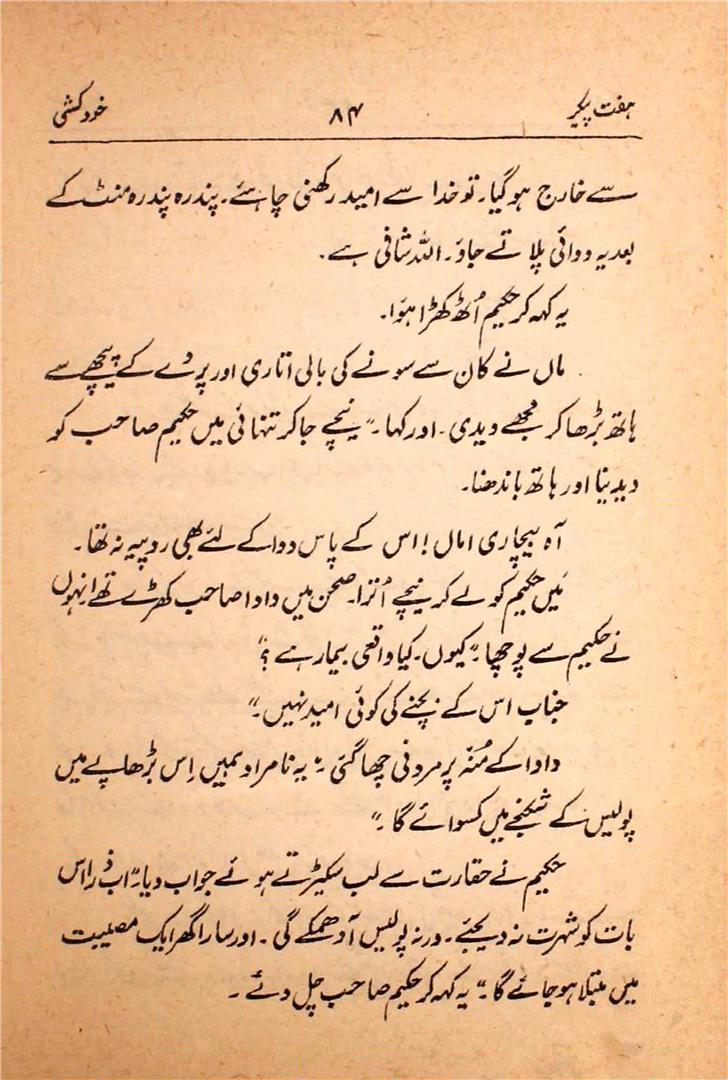 ہفت پیکر ۸۴ خودکشی
سے خارج ہو گیا۔ تو خدا سے امید رکھنی چاہئے۔ پندرہ پندرہ منٹ کے
بعد یہ دوائی پلاتے جاؤ۔ اللہ شافی ہے۔
یہ کہہ کر حکیم اُٹھ کھڑا ہؤا۔
ماں نے کان سے سونے کی بالی اتاری اور پردے کے پیچھے سے
ہاتھ بڑھا کر مجھے دیدی۔ اور کہا۔ "نیچے جا کر تنہائی میں حکیم صاحب کو
دیدینا اور ہاتھ باندھنا۔
آہ بیچاری اماں! اس کے پاس دوا کے لئے بھی روپیہ نہ تھا۔
مَیں حکیم کو لے کر نیچے اُترا۔ صحن میں دادا صاحب کھڑے تھے انہوں
نے حکیم سے پوچھا۔ "کیوں۔ کیا واقعی بیمار ہے؟"
جناب اس کے بچنے کی کوئی امید نہیں۔"
دادا کے مُنہ پر مردنی چھا گئی۔ "یہ نامراد ہمیں اِس بڑھاپے میں
پولیس کے شکنجے میں کسوائے گا۔"
حکیم نے حقارت سے لب سکیڑتے ہوئے جواب دیا۔ "اب ذرا اس
بات کو شہرت نہ دیجئے۔ ورنہ پولیس آدھمکے گی۔ اور سارا گھر ایک مصیبت
میں مبتلا ہو جائے گا۔" یہ کہہ کر حکیم صاحب چل دئے۔